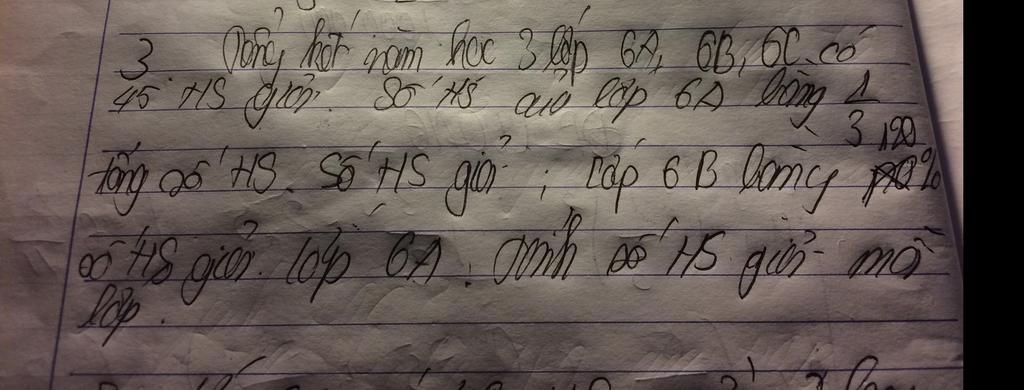 3 Tổng kết năm học 3 lớp 6A, 6B, 6C có
45 HS giỏi. Số HS của lớp 6A bằng 1
3 120
tổng số HS. Số HS giỏi ; lớp 6B bằng %
số HS giỏi lớp 6A. Tính số HS giỏi mỗi
lớp.